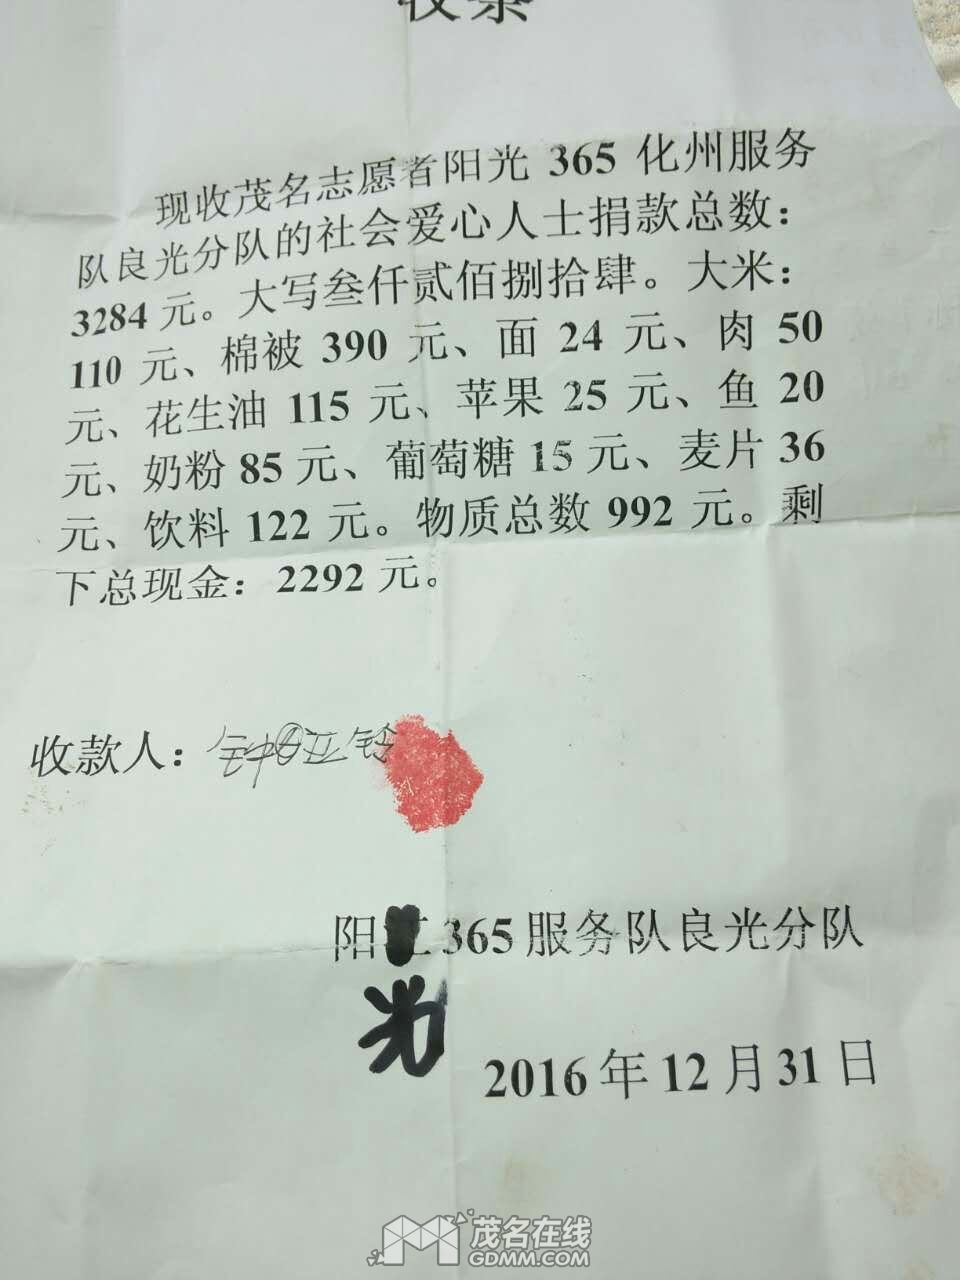 收条
现收茂名志愿者阳光 365 化州服务
队良光分队的社会爱心人士捐款总数：
3284 元。大写叁仟贰佰捌拾肆。大米：
110 元、棉被 390 元、面 24 元、肉 50
元、花生油 115 元、苹果 25 元、鱼 20
元、奶粉 85 元、葡萄糖 15 元、麦片 36
元、饮料 122 元。物质总数 992 元。剩
下总现金：2292 元。
收款人：钟亚铃
阳江 365 服务队良光分队
光
2016 年 12 月 31 日
茂名在线
GDMM.COM